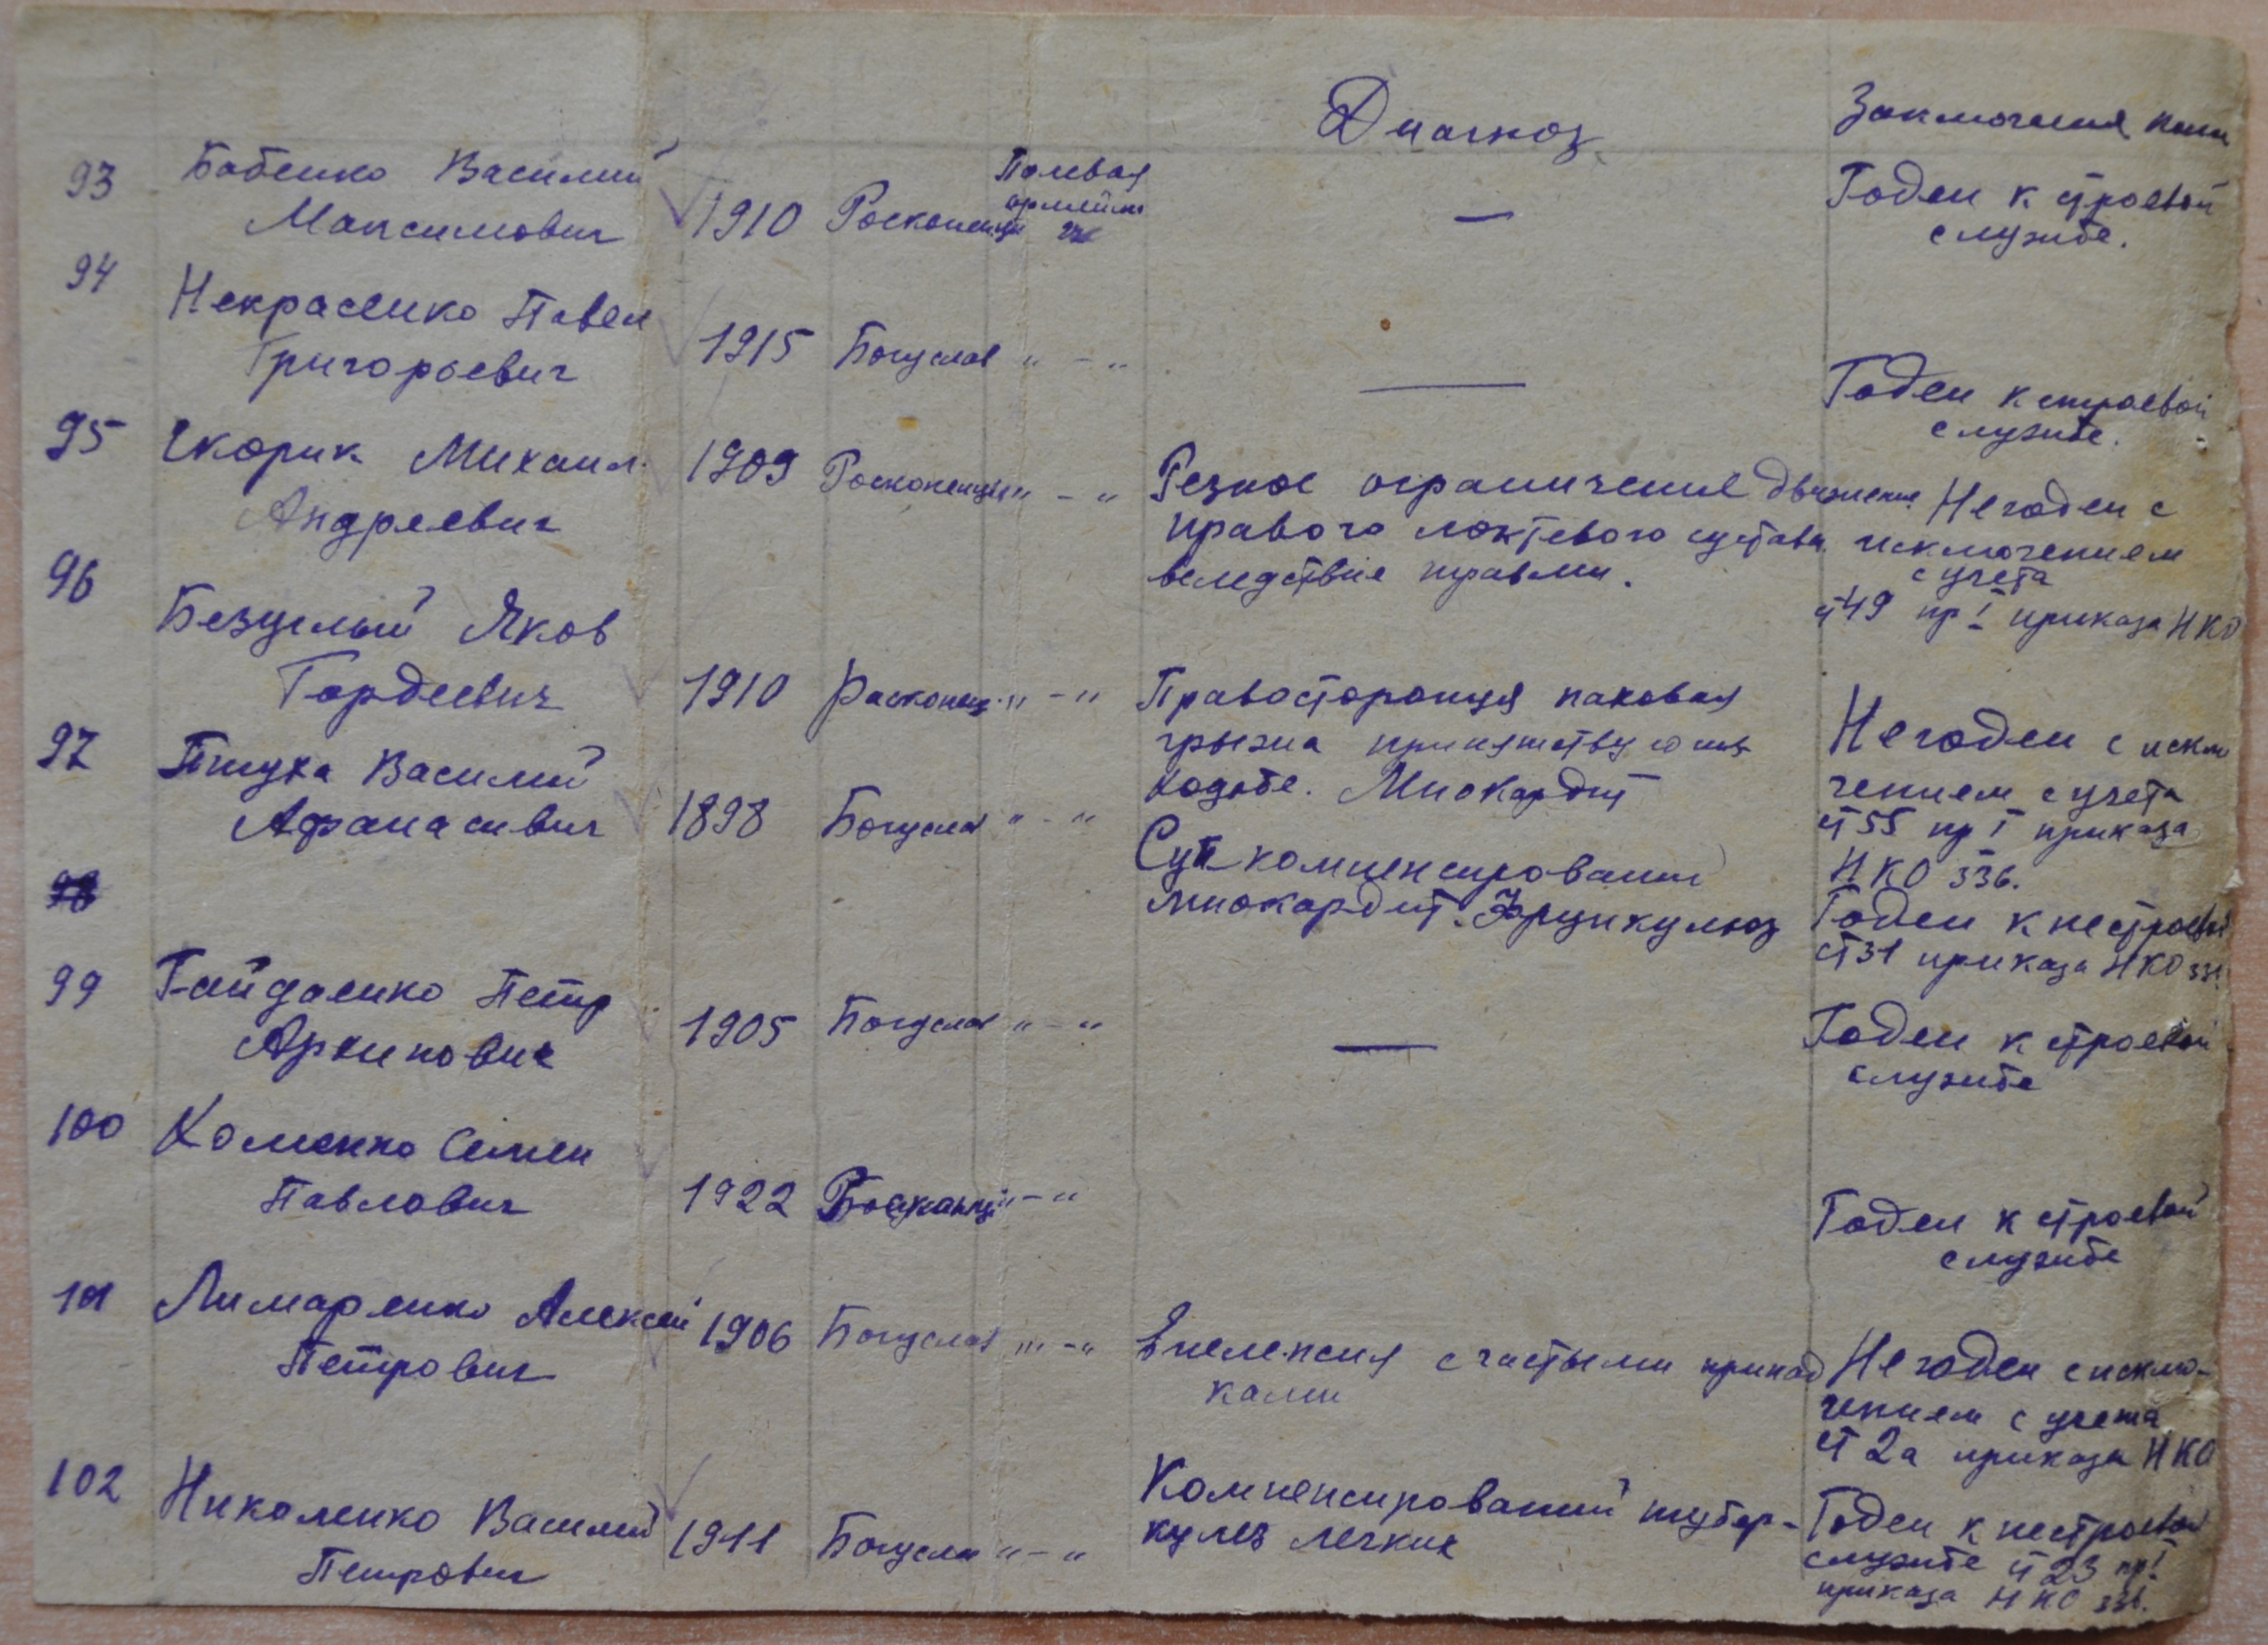 Диагноз
Заключения
93 Бабенко Василий
Максимович
1910
Полевая
Годен к строевой
службе.
94 Некрасенко Павел
Григорьевич
1915 Богуслав " - "
Годен к строевой
службе.
95 Скорик Михаил
Андреевич
1909 " - "
Резкое ограничение движения
правого локтевого сустава
вследствие травмы.
Негоден с
исключением
с учета
ст 49 пр I приказа НКО
96 Безуглый Яков
Гордеевич
1910 " - "
Правосторонця паховая
грыжа
ходьбе. Миокардит
Негоден с исклю
чением с учета
ст 55 пр I приказа
НКО 336.
97 Птуха Василий
Афанасивич
1898 Богуслав " - "
Суп компенсированый
миокардит. Фрункулюз
Годен к нестроевой
ст 31 приказа НКО 336.
98
99 Гайдаенко Петр
Архипович
1905 Богуслав " - "
Годен к строевой
службе
100 Хоменко Семен
Павлович
1922 " - "
Годен к строевой
службе
101 Лимаренко Алексей
Петрович
1906 Богуслав " - "
Епелепсия с частыми припад
ками
Негоден с исклю-
чением с учета
ст 2а приказа НКО
102 Николенко Василий
Петрович
1911 Богуслав " - "
Компенсированый тубер-
кулез легких
Годен к нестроевой
службе ст 23 пр I
приказа НКО 336.